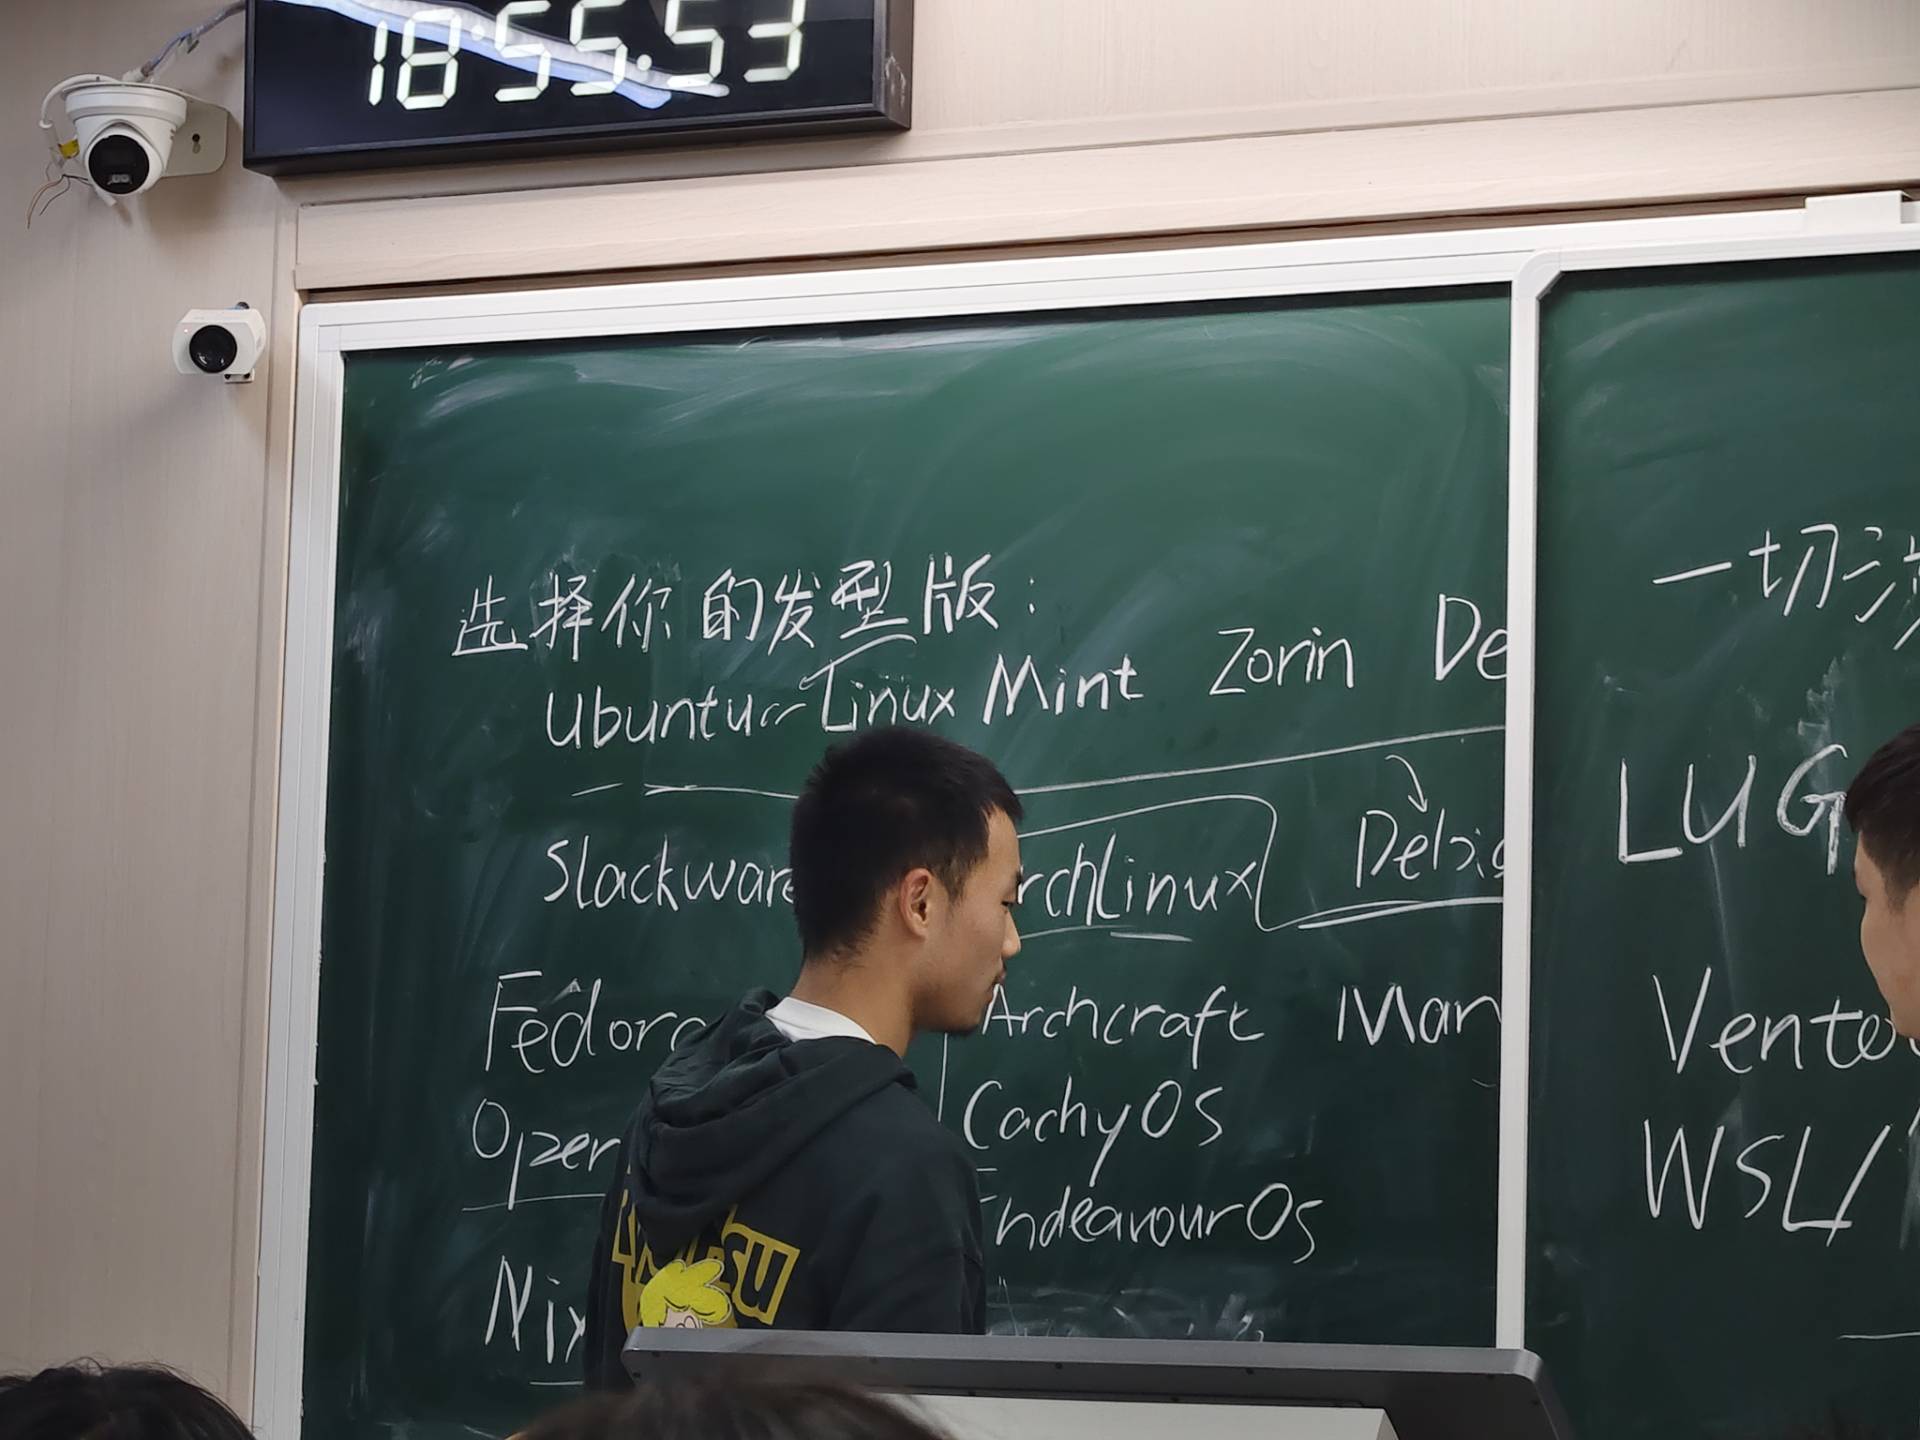 18:55:53
选择你的发型版:
Ubuntu Linux Mint Zorin De
Slackware rchLinux Debia
Fedora Archcraft Man
Open CachyOS
EndeavourOS
Nix
SU
一切
LUG
Vento
WSL/